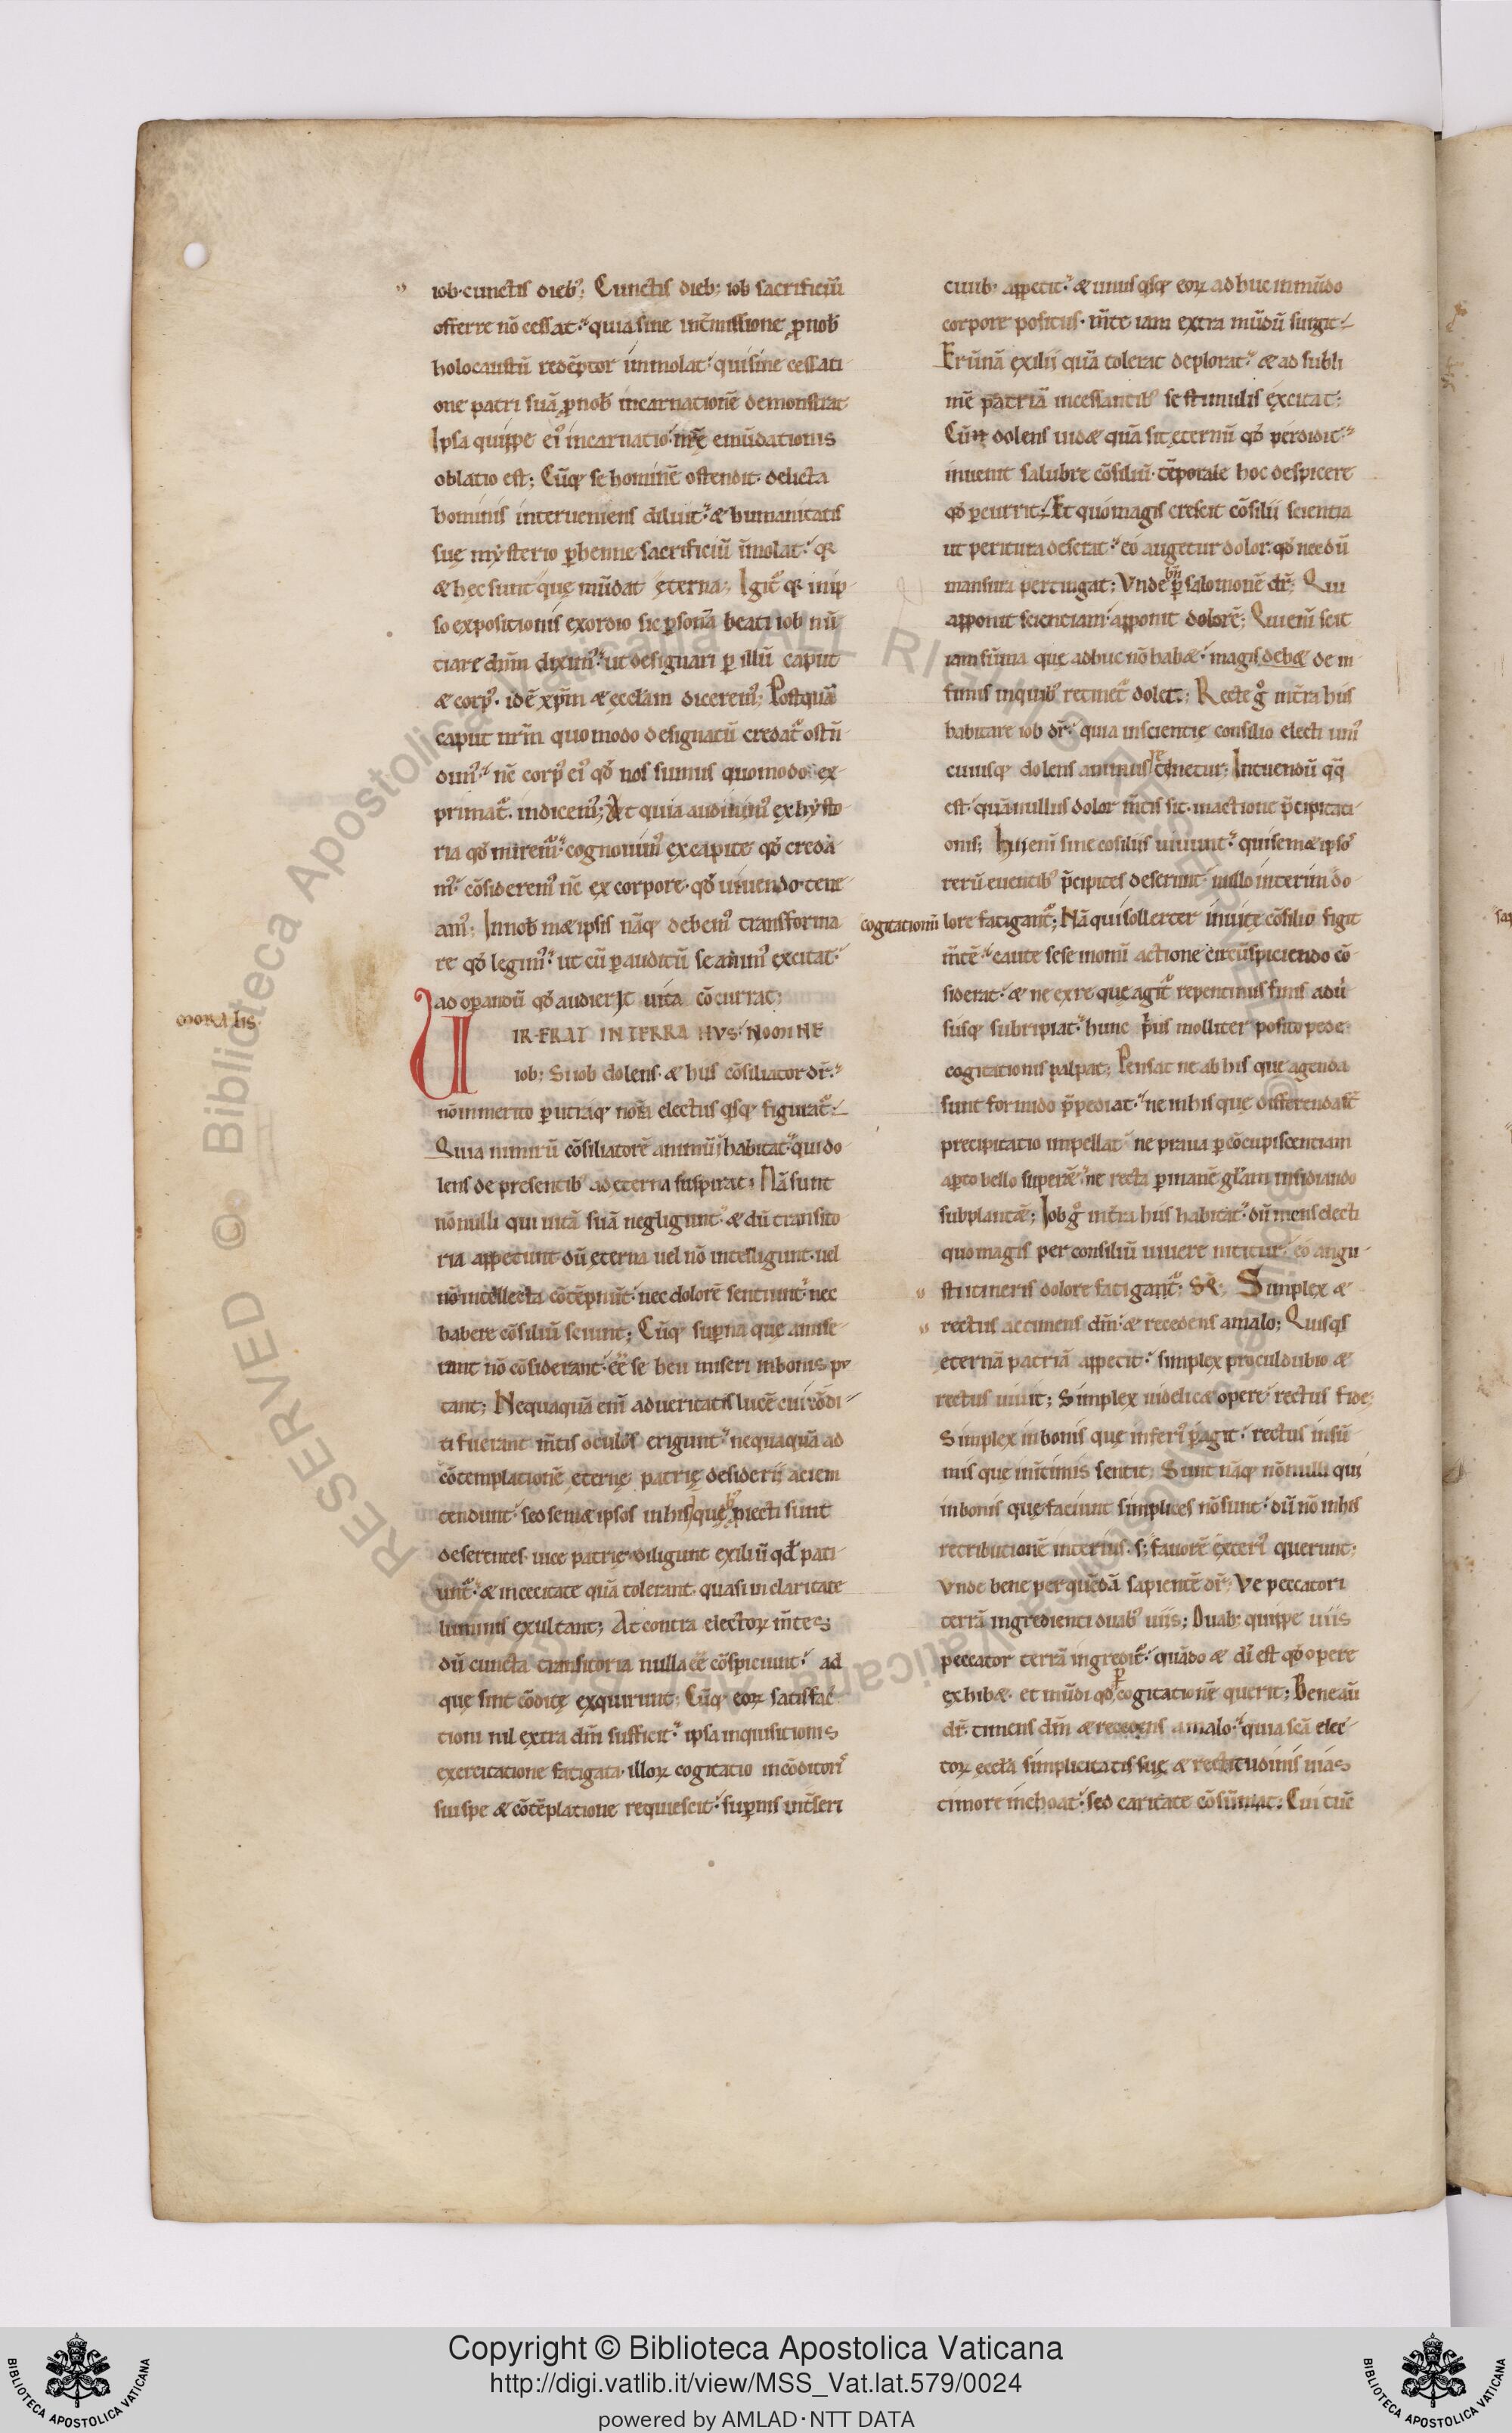 iob·cunctis dieb᷒; Cunctis dieb; iob sacrificiū
offerre nō cessat· quia sine int̄missione ꝓ nob̄
holocaustū redēptor immolat· qui sine cessati
one patri suā ꝓ nob̄ incarnationē demonstrat
Ipsa quippe ei᷒ incarnatio· nr̄ę emūdationis
oblatio est; Cūq; se hominē ostendit· delicta
hominis interueniens diluit· & humanitatis
suę mẏsterio ꝑhenne sacrificiū īmolat· q͛
& hęc sunt quę mūdat ęterna; Igit᷑ q͛ in ip
so expositionis exordio sic ꝑsonā beati iob nū
tiare dn̄m dixim᷒· ut designari ꝑ illū caput
& corp᷒· idē xp̄m & ecclām dicerem᷒; Postquā
caput nr̄m quomodo designatū credat᷑ ostē
dim᷒· nc̄ corp᷒ ei᷒ qd̄ nos sumus quomodo ex
primat᷑· indicem᷒; Et quia audiuim᷒ ex hẏsto
ria qd̄ mirem᷑· cognouim᷒ ex capite qd̄ creda
m᷒· cōsiderem᷒ nc̄ ex corpore· qd̄ uiuendo tene
am᷒; In nob̄ m&ipsis nāq; debem᷒ transforma
re qd̄ legim᷒· ut cū ꝑ auditū se anim᷒ excitat·
ad oꝑandū qd̄ audierit uita cōcurrat;
moralis·
VIR·ERAT IN TERRA HVS· NOMINE
iob; Si iob dolens· & hus cōsiliator dr̄·
nō inmerito ꝑ utraq; noīa electus qsq; figurat᷑·
Quia nimirū cōsiliatorē animū inhabitat· qui do
lens de presentib᷒ ad eterna suspirat; Nā sunt
nōnulli qui uitā suā negligunt· & dū transito
ria appetunt dū ęterna uel nō intelligunt· uel
nō intellecta cōtēpnūt· nec dolorē sentiunt· nec
habere cōsiliū sciunt; Cūq; suꝑna que amise
rant nō cōsiderant· eē se heu miseri in bonis pu
tant; Nequaquā enī ad ueritatis lucē cui cōdi
ti fuerant m̄tis oculos erigunt· nequaquā ad
cōtemplationē ęternę patrię desiderii aciem
tendunt· sed sem&ipsos in his quib᷒ ꝓiecti sunt
deserentes· uice patrię diligunt exiliū qd̄ pati
unt᷑· & in cecitate quā tolerant· quasi in claritate
luminis exultant; At contra electoꝝ m̄tes;
dū cuncta transitoria nulla eē cōspiciunt· ad
que sint cōditę exquirunt; Cūq; eoꝝ satisfac
tioni nil extra dm̄ sufficit· ipsa inquisitionis
exercitatione fatigata· illoꝝ cogitatio in cōditoris
sui spe & cōtēplatione requiescit· suꝑnis int̄seri
ciuib· appetit· & unusqsq; eoꝝ adhuc in mūdo
corpore positus· m̄te iam extra mūdū surgit·
Erūnā exilii quā tolerat deplorat· & ad subli
mē patriā incessantib᷒ se stimulis excitat;
Cū dolens uid& quā sit ęternū qd̄ perdidit·
inuenit salubre cōsiliū· tēporale hoc despicere
qd̄ ꝑcurrit· Et quo magis crescit cōsilii scientia
ut peritura deserat· eo augetur dolor· qd̄ necdū
mansura pertingat; Vnde bn̄ ꝑ salomonē dr̄; Qui
apponit scientiam· apponit dolorē; Qui enī scit
iam sūma que adhuc nō hab&· magis de
fimis in quib᷒ retinet᷑ dolet; Recte g᷎ int̄ra hus
habitare iob dr̄· quia in scientię consilio electi uni᷒
cuiusq; dolens animus tenetur; Intuendū qq̄
est· quā nullus dolor m̄tis sit· in actione p̄cipitati
onis; Hii enī sine cosiliis uiuunt· qui sem&ipsos
rerū euentib᷒ p̄cipites deserunt· nullo interim do
cogitationū lore fatigant᷑; Nā qui sollerter in uite cōsilio figit
m̄tē· caute sese in omī actione circūspiciendo cō
siderat· & ne ex re que agit᷑ repentinus finis aduer
susq; subripiat· hunc p̄us molliter posito pede
cogitationis palpat; Pensat ne ab his que agenda
sunt formido p̄pediat· ne in his quę differenda st̄
precipitatio impellat· ne praua ꝑ cōcupiscentiam
aꝑto bello superē&· ne recta ꝑ inanē glām insidiando
subplant&; Iob g᷎ int̄ra hus habitat· dū mens electi
quo magis per consiliū uiuere nititur· eo angu
sti itineris dolore fatigant᷑· Simplex &
rectus ac timens dm̄· & recedens a malo; Quisqs
eternā patriā appetit· simplex proculdubio &
rectus uiuit; Simplex uidelic& opere· rectus fide;
Simplex in bonis que inferi᷒ ꝑagit· rectus in sū
mis que int̄imis sentit; Sunt nāq; nōnulli qui
in bonis quę faciunt simplices nō sunt· dū nō in his
retributionē interius· s; fauorē exteri᷒ querunt;
Vnde bene per quēdā sapientē dr̄· Ve peccatori
terrā ingredienti duab᷒ uiis; Duab; quippe uiis
peccator terrā ingredit᷑· quādo & dī est qd̄ opere
exhib&· et mūdi qd̄ ꝑ cogitationē querit; Bene aū
dr̄· timens dm̄ & recedens a malo· quia scā elec
toꝝ ecclā simplicitatis suę & rectitudinis uias
timore inchoat· sed caritate cōsūmat; Cui tūc
Copyright © Biblioteca Apostolica Vaticana
http://digi.vatlib.it/view/MSS_Vat.lat.579/0024
powered by AMLAD·NTT DATA
BIBLIOTECA APOSTOLICA VATICANA
BIBLIOTECA APOSTOLICA VATICANA